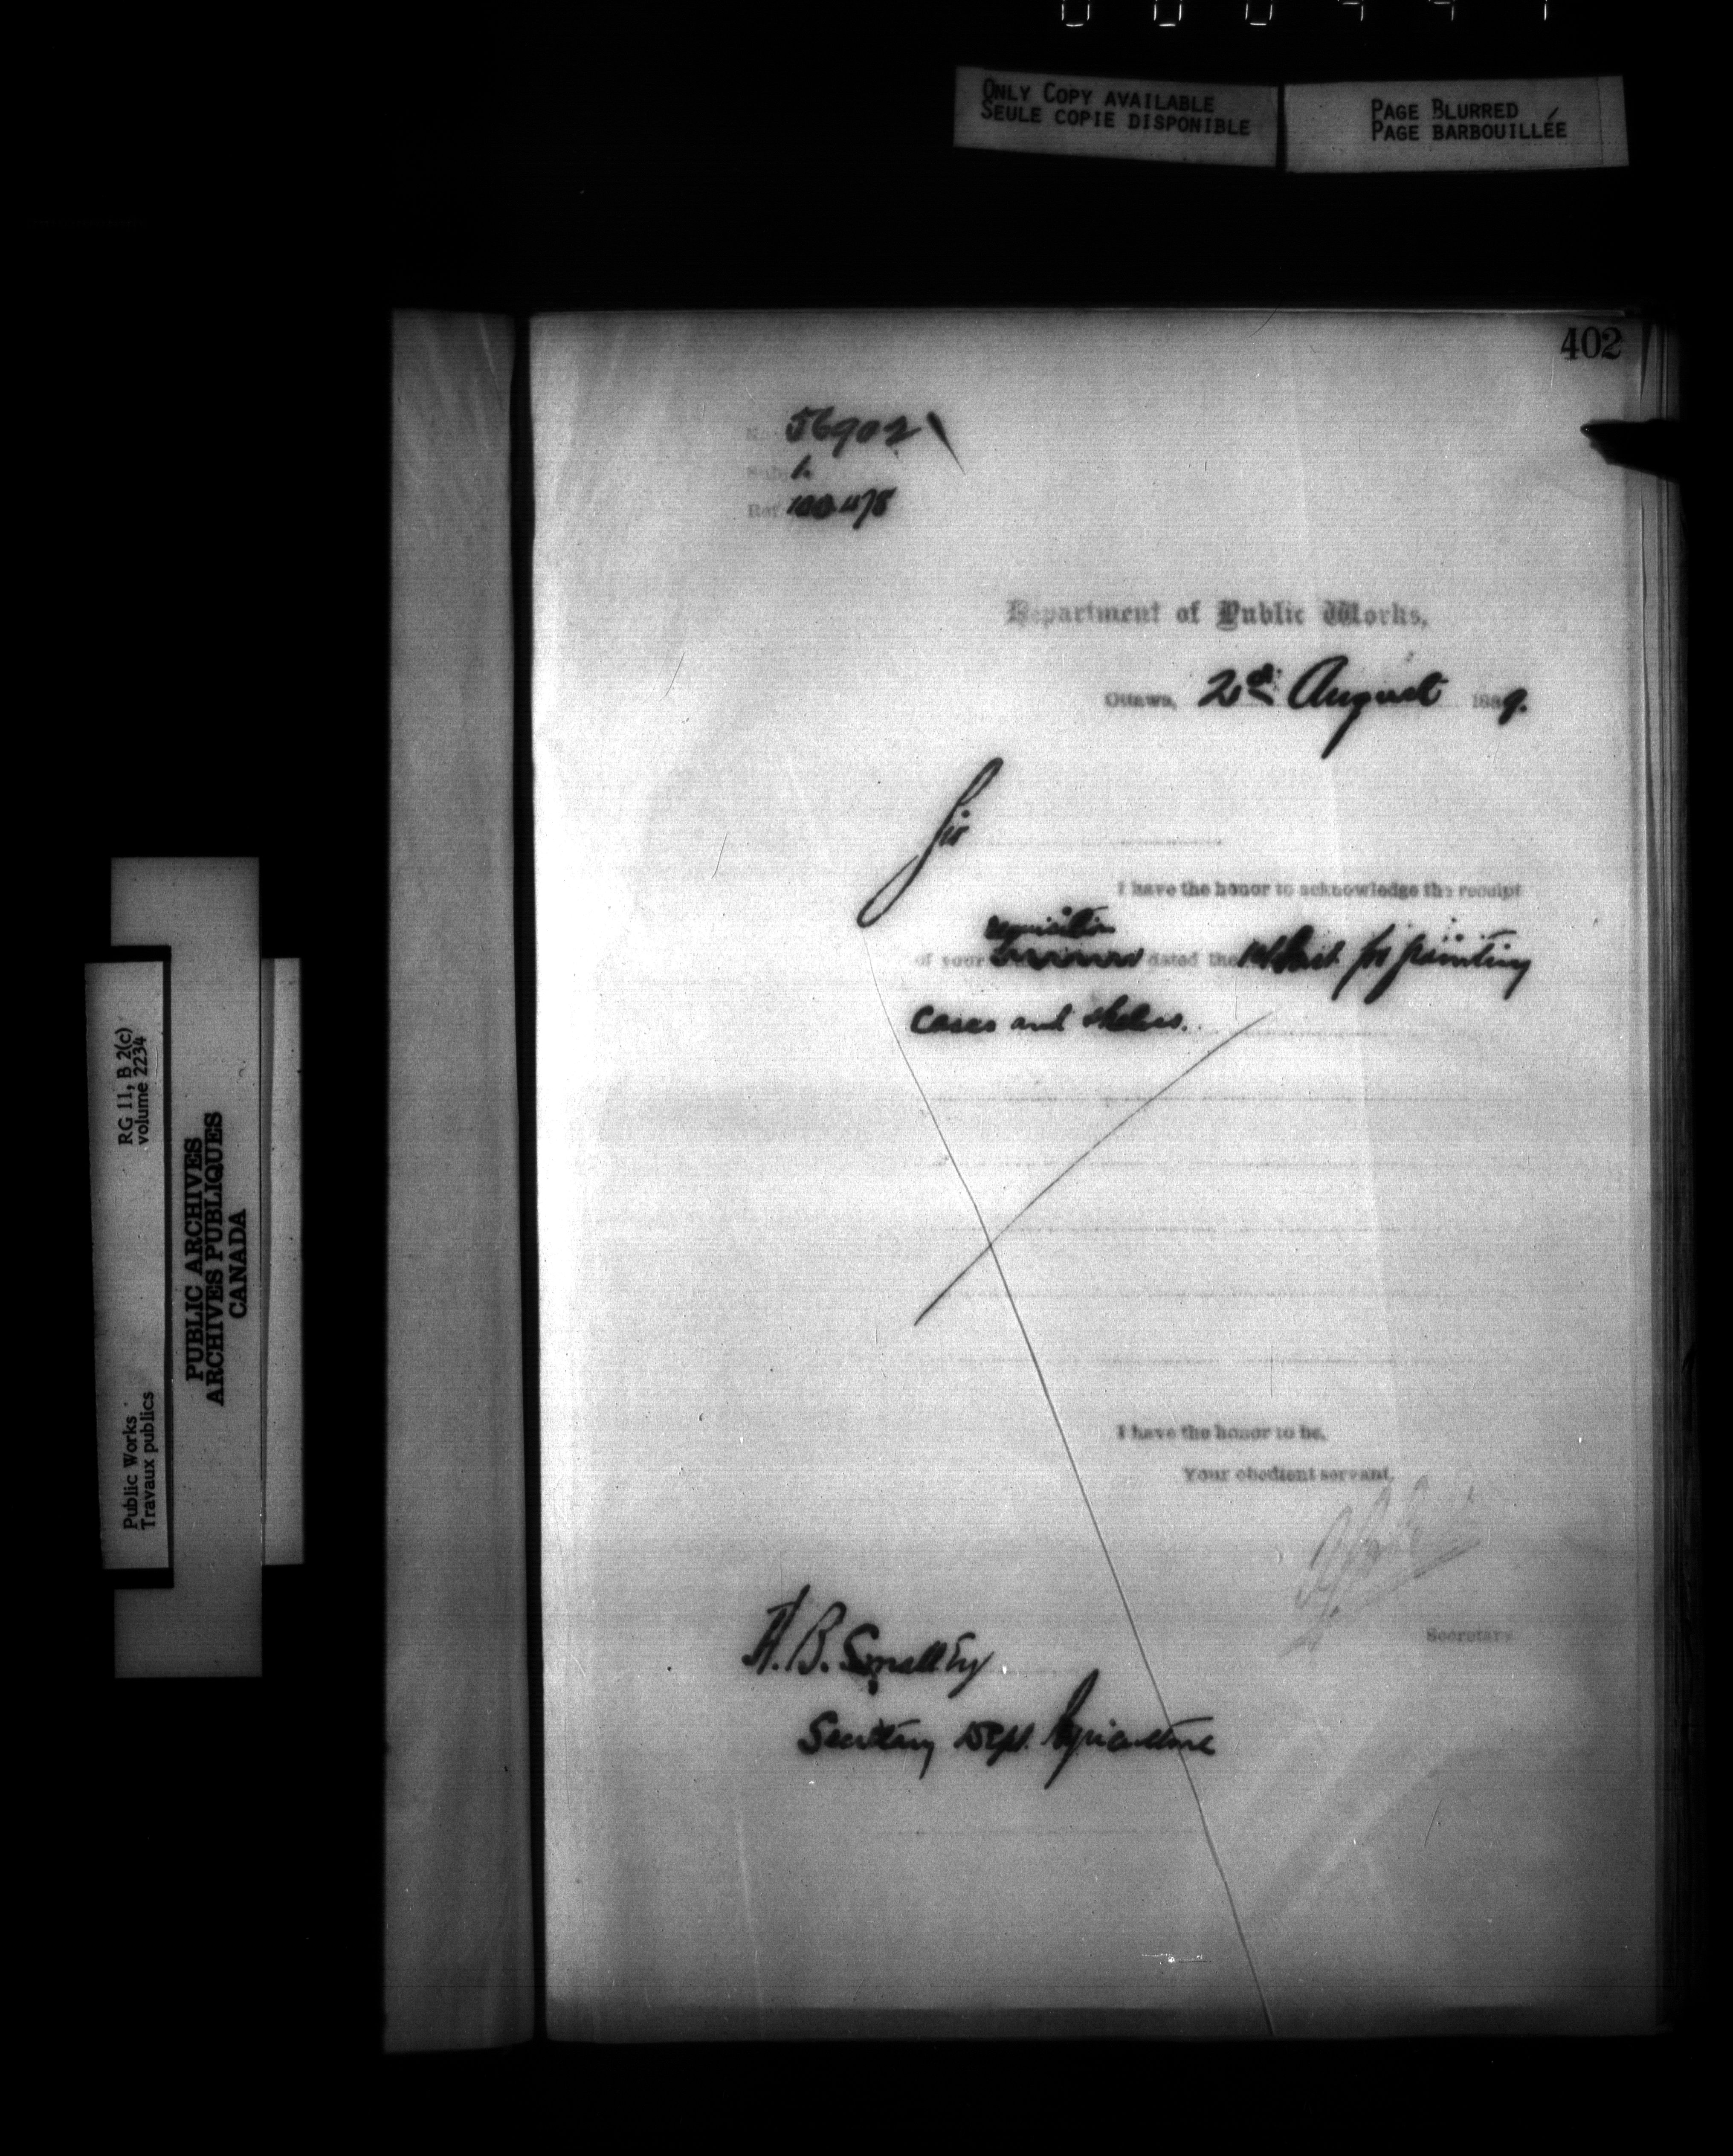 ONLY COPY AVAILABLE
SEULE COPIE DISPONIBLE
PAGE BLURRED
PAGE BARBOUILLÉE
402
No. 56902
Sub. 1.
Ref. 100478
Department of Public Works,
Ottawa, 2nd August 1889.
Sir
I have the honor to acknowledge the receipt
requisition
of your dated the 1st Inst. for painting
cases and shelves.
I have the honor to be,
Your obedient servant,
Secretary
H. B. Small Esq
Secretary Dept. Agriculture
RG 11, B 2(c)
volume 2234
Public Works
Travaux publics
PUBLIC ARCHIVES
ARCHIVES PUBLIQUES
CANADA